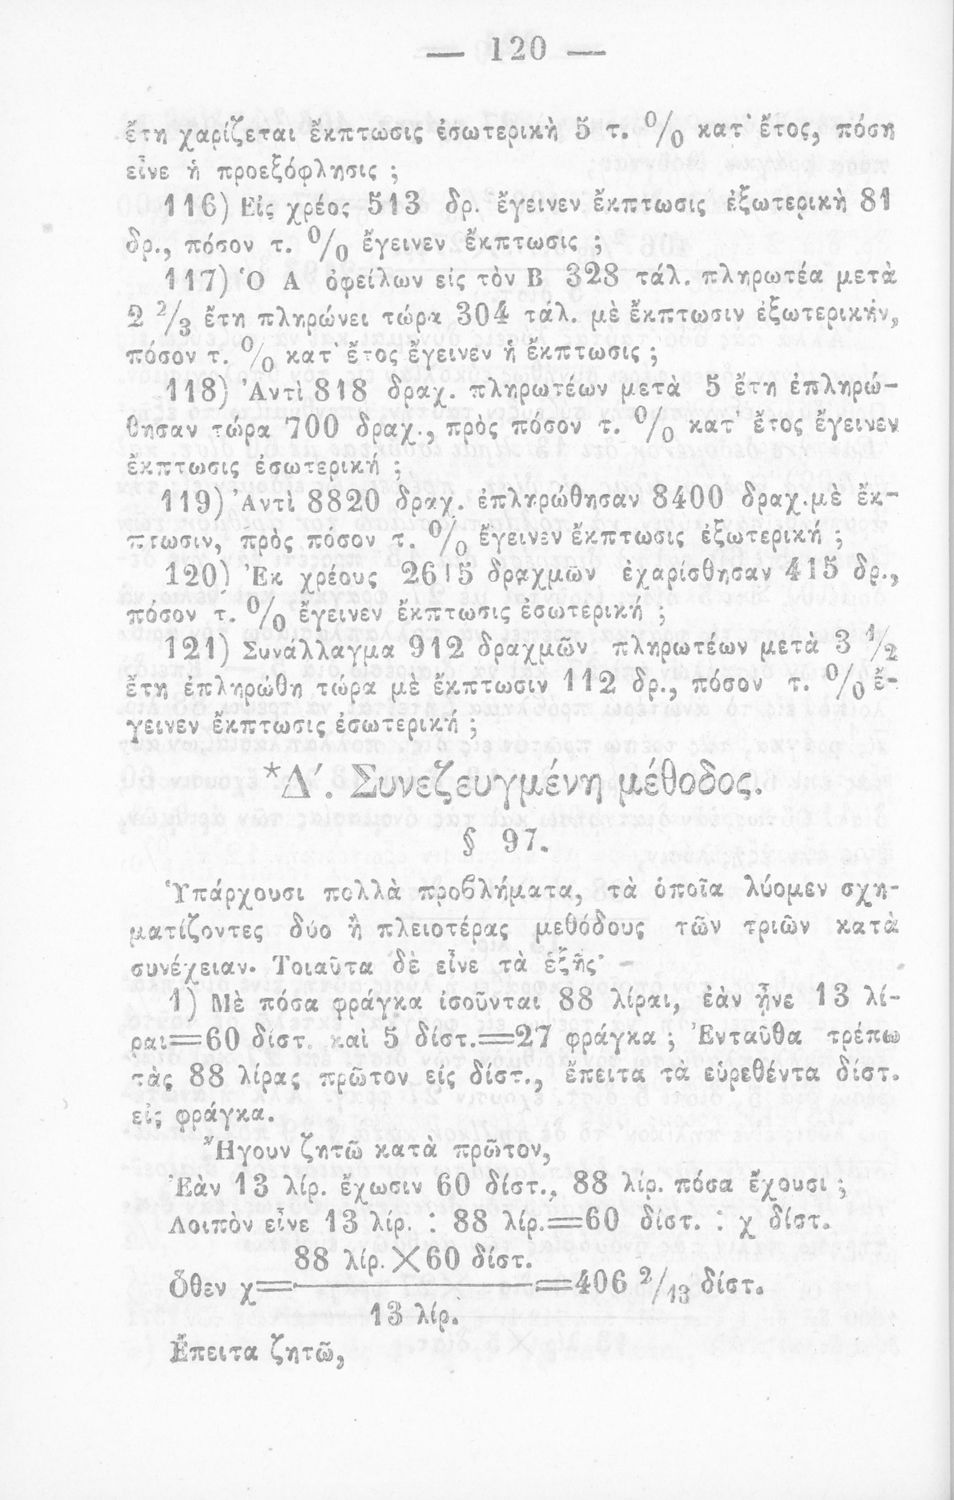 — 120 —
ἔτη χαρίζεται ἔκπτωσις ἐσωτερικὴ 5 τ. % κατ' ἔτος, πόση
εἶνε ἡ προεξόφλησις ;
116) Εἰς χρέος 513 δρ. ἔγεινεν ἔκπτωσις ἐξωτερικὴ 81
δρ., πόσον τ. % ἔγεινεν ἔκπτωσις ;
117) Ὁ Α ὀφείλων εἰς τὸν Β 328 τάλ. πληρωτέα μετὰ
2 2/3 ἔτη πληρώνει τώρα 304 τάλ. μὲ ἔκπτωσιν ἐξωτερικήν,
πόσον τ. % κατ' ἔτος ἔγεινεν ἡ ἔκπτωσις ;
118) Ἀντὶ 818 δραχ. πληρωτέων μετὰ 5 ἔτη ἐπληρώ-
θησαν τώρα 700 δραχ., πρὸς πόσον τ. % κατ' ἔτος ἔγεινεν
ἔκπτωσις ἐσωτερική ;
119) Ἀντὶ 8820 δραχ. ἐπληρώθησαν 8400 δραχ. μὲ ἔκ-
πτωσιν, πρὸς πόσον τ. % ἔγεινεν ἔκπτωσις ἐξωτερική ;
120) Ἐκ χρέους 2615 δραχμῶν ἐχαρίσθησαν 415 δρ.,
πόσον τ. % ἔγεινεν ἔκπτωσις ἐσωτερική ;
121) Συνάλλαγμα 912 δραχμῶν πληρωτέων μετὰ 3 1/2
ἔτη ἐπληρώθη τώρα μὲ ἔκπτωσιν 112 δρ., πόσον τ. % ἔ-
γεινεν ἔκπτωσις ἐσωτερική ;
*Δ΄. Συνεζευγμένη μέθοδος.
§ 97.
Ὑπάρχουσι πολλὰ προβλήματα, τὰ ὁποῖα λύομεν σχη-
ματίζοντες δύο ἢ πλειοτέρας μεθόδους τῶν τριῶν κατὰ
συνέχειαν. Τοιαῦτα δὲ εἶνε τὰ ἑξῆς·
1) Μὲ πόσα φράγκα ἰσοῦνται 88 λίραι, ἐὰν ἦνε 13 λί-
ραι=60 δίστ. καὶ 5 δίστ.=27 φράγκα ; Ἐνταῦθα τρέπω
τὰς 88 λίρας πρῶτον εἰς δίστ., ἔπειτα τὰ εὑρεθέντα δίστ.
εἰς φράγκα.
Ἤγουν ζητῶ κατὰ πρῶτον,
Ἐὰν 13 λίρ. ἔχωσιν 60 δίστ., 88 λίρ. πόσα ἔχουσι ;
Λοιπὸν εἶνε 13 λίρ. : 88 λίρ.=60 δίστ. : χ δίστ.
88 λίρ. × 60 δίστ.
ὅθεν χ=————=406 2/13 δίστ.
13 λίρ.
Ἔπειτα ζητῶ,